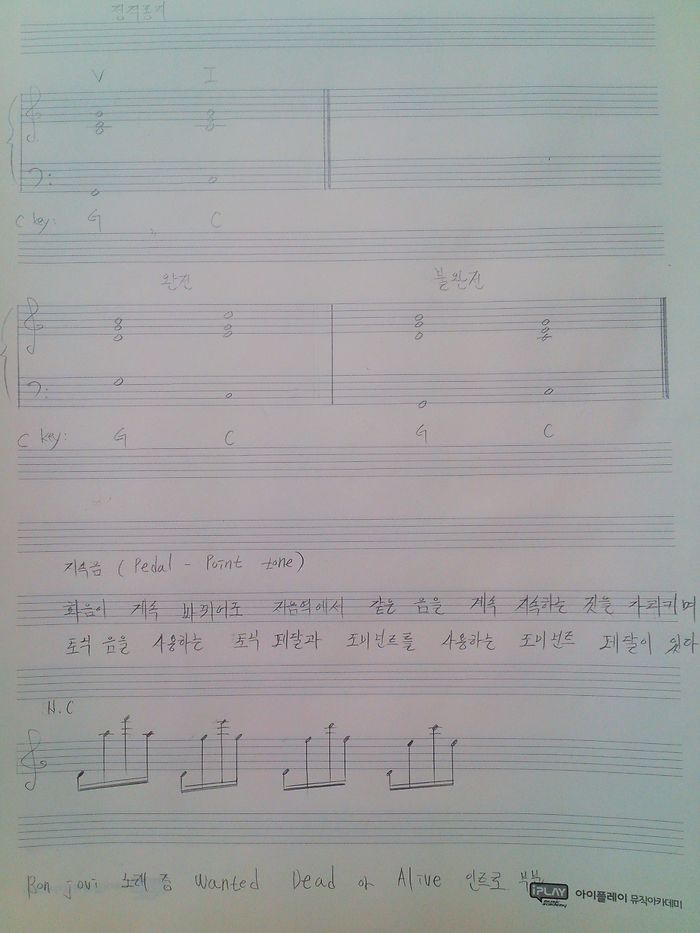 정격종지
V I
C key: G C
완전 불완전
C key: G C G C
지속음 (Pedal - Point tone)
화음이 계속 바뀌어도 저음위에서 같은 음을 계속 지속하는 것을 가리키며
토닉 음을 사용하는 토닉 페달과 도미넌트를 사용하는 도미넌트 페달이 있다
N.C
Bon jovi 노래 중 Wanted Dead or Alive 인트로 부분
iPLAY 아이플레이 뮤직아카데미